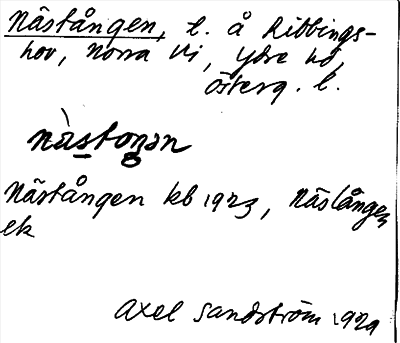 Nästången, t. å Ribbings-
hov, Norra Vi, Ydre hd,
Österg. l.
nä̀stoŋən
Nästången kb 1923, Näslången
ek
Axel Sandström 1929